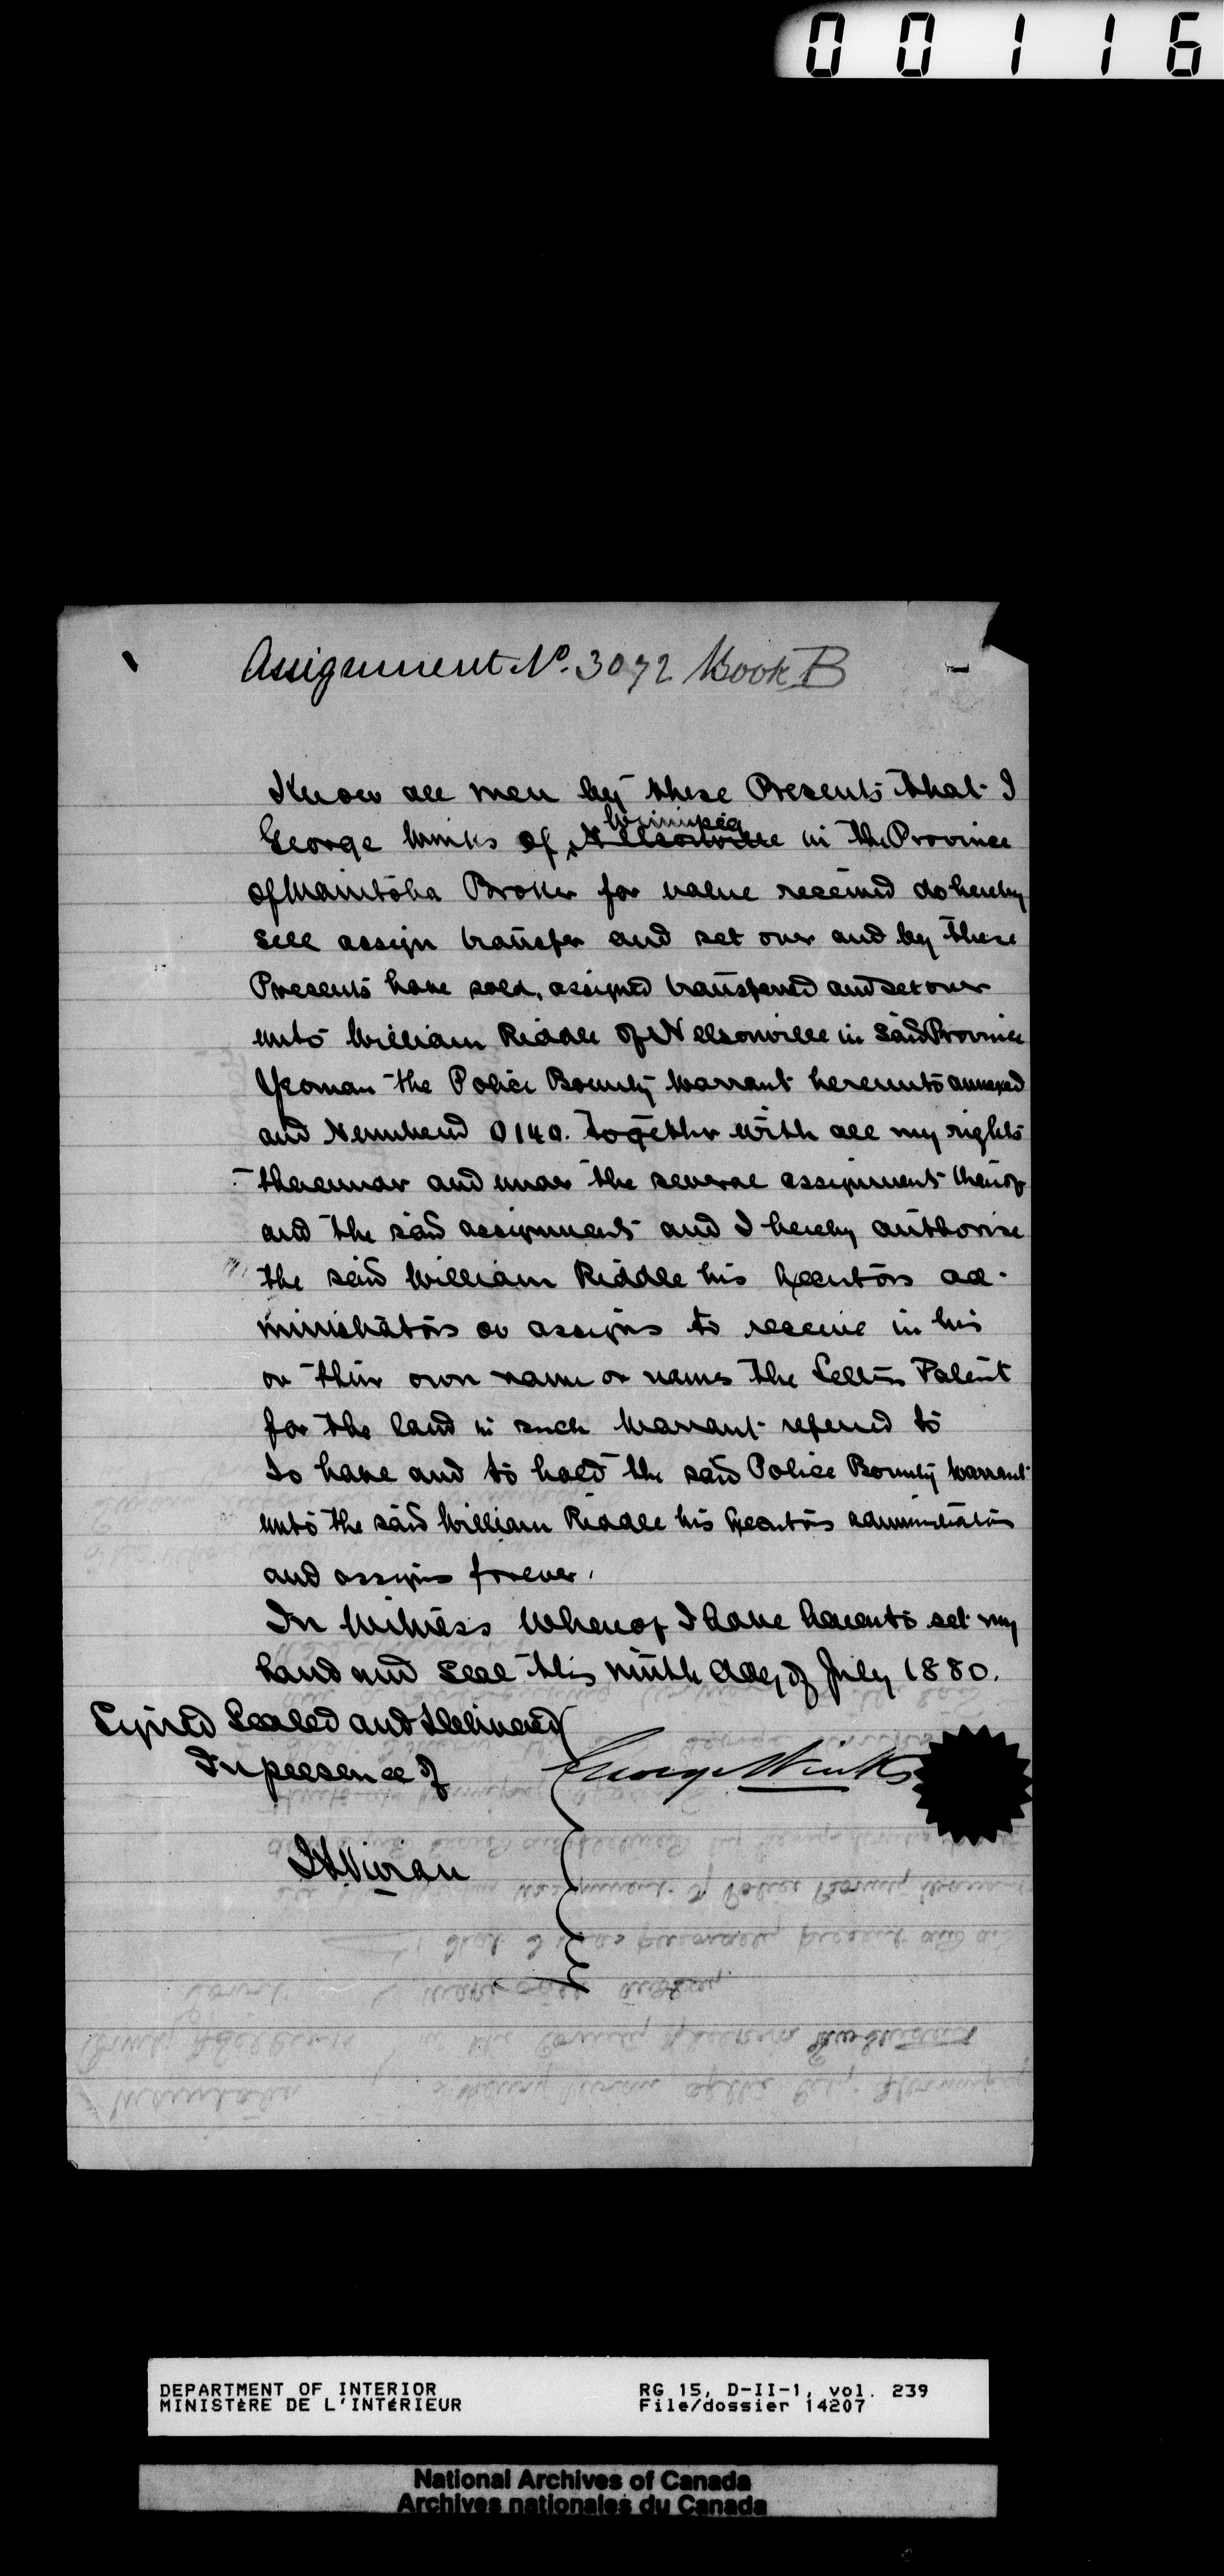 00116
Assignment No. 3072 Book B
Know all men by these Presents that I
Winnipeg
George Winks of Nelsonville in the Province
of Manitoba Broker for value received do hereby
sell assign transfer and set over and by these
Presents have sold, assigned transferred and set over
unto William Riddle of Nelsonville in said Province
Yeoman the Police Bounty Warrant hereunto annexed
and Numbered 0140. together with all my rights
thereunder and under the several assignments thereof
and the said assignments and I hereby authorise
the said William Riddle his Executors ad-
ministrators or assigns to receive in his
or their own name or names the Letters Patent
for the land in such Warrant referred to
To have and to hold the said Police Bounty Warrant
unto the said William Riddle his Executors administrators
and assigns forever.
In Witness Whereof I have hereunto set my
hand and Seal this ninth day of July 1880.
Signed Sealed and Delivered
In presence of
George Winks
H Vivian
DEPARTMENT OF INTERIOR
MINISTÈRE DE L'INTÉRIEUR
RG 15, D-II-1, vol. 239
File/dossier 14207
National Archives of Canada
Archives nationales du Canada